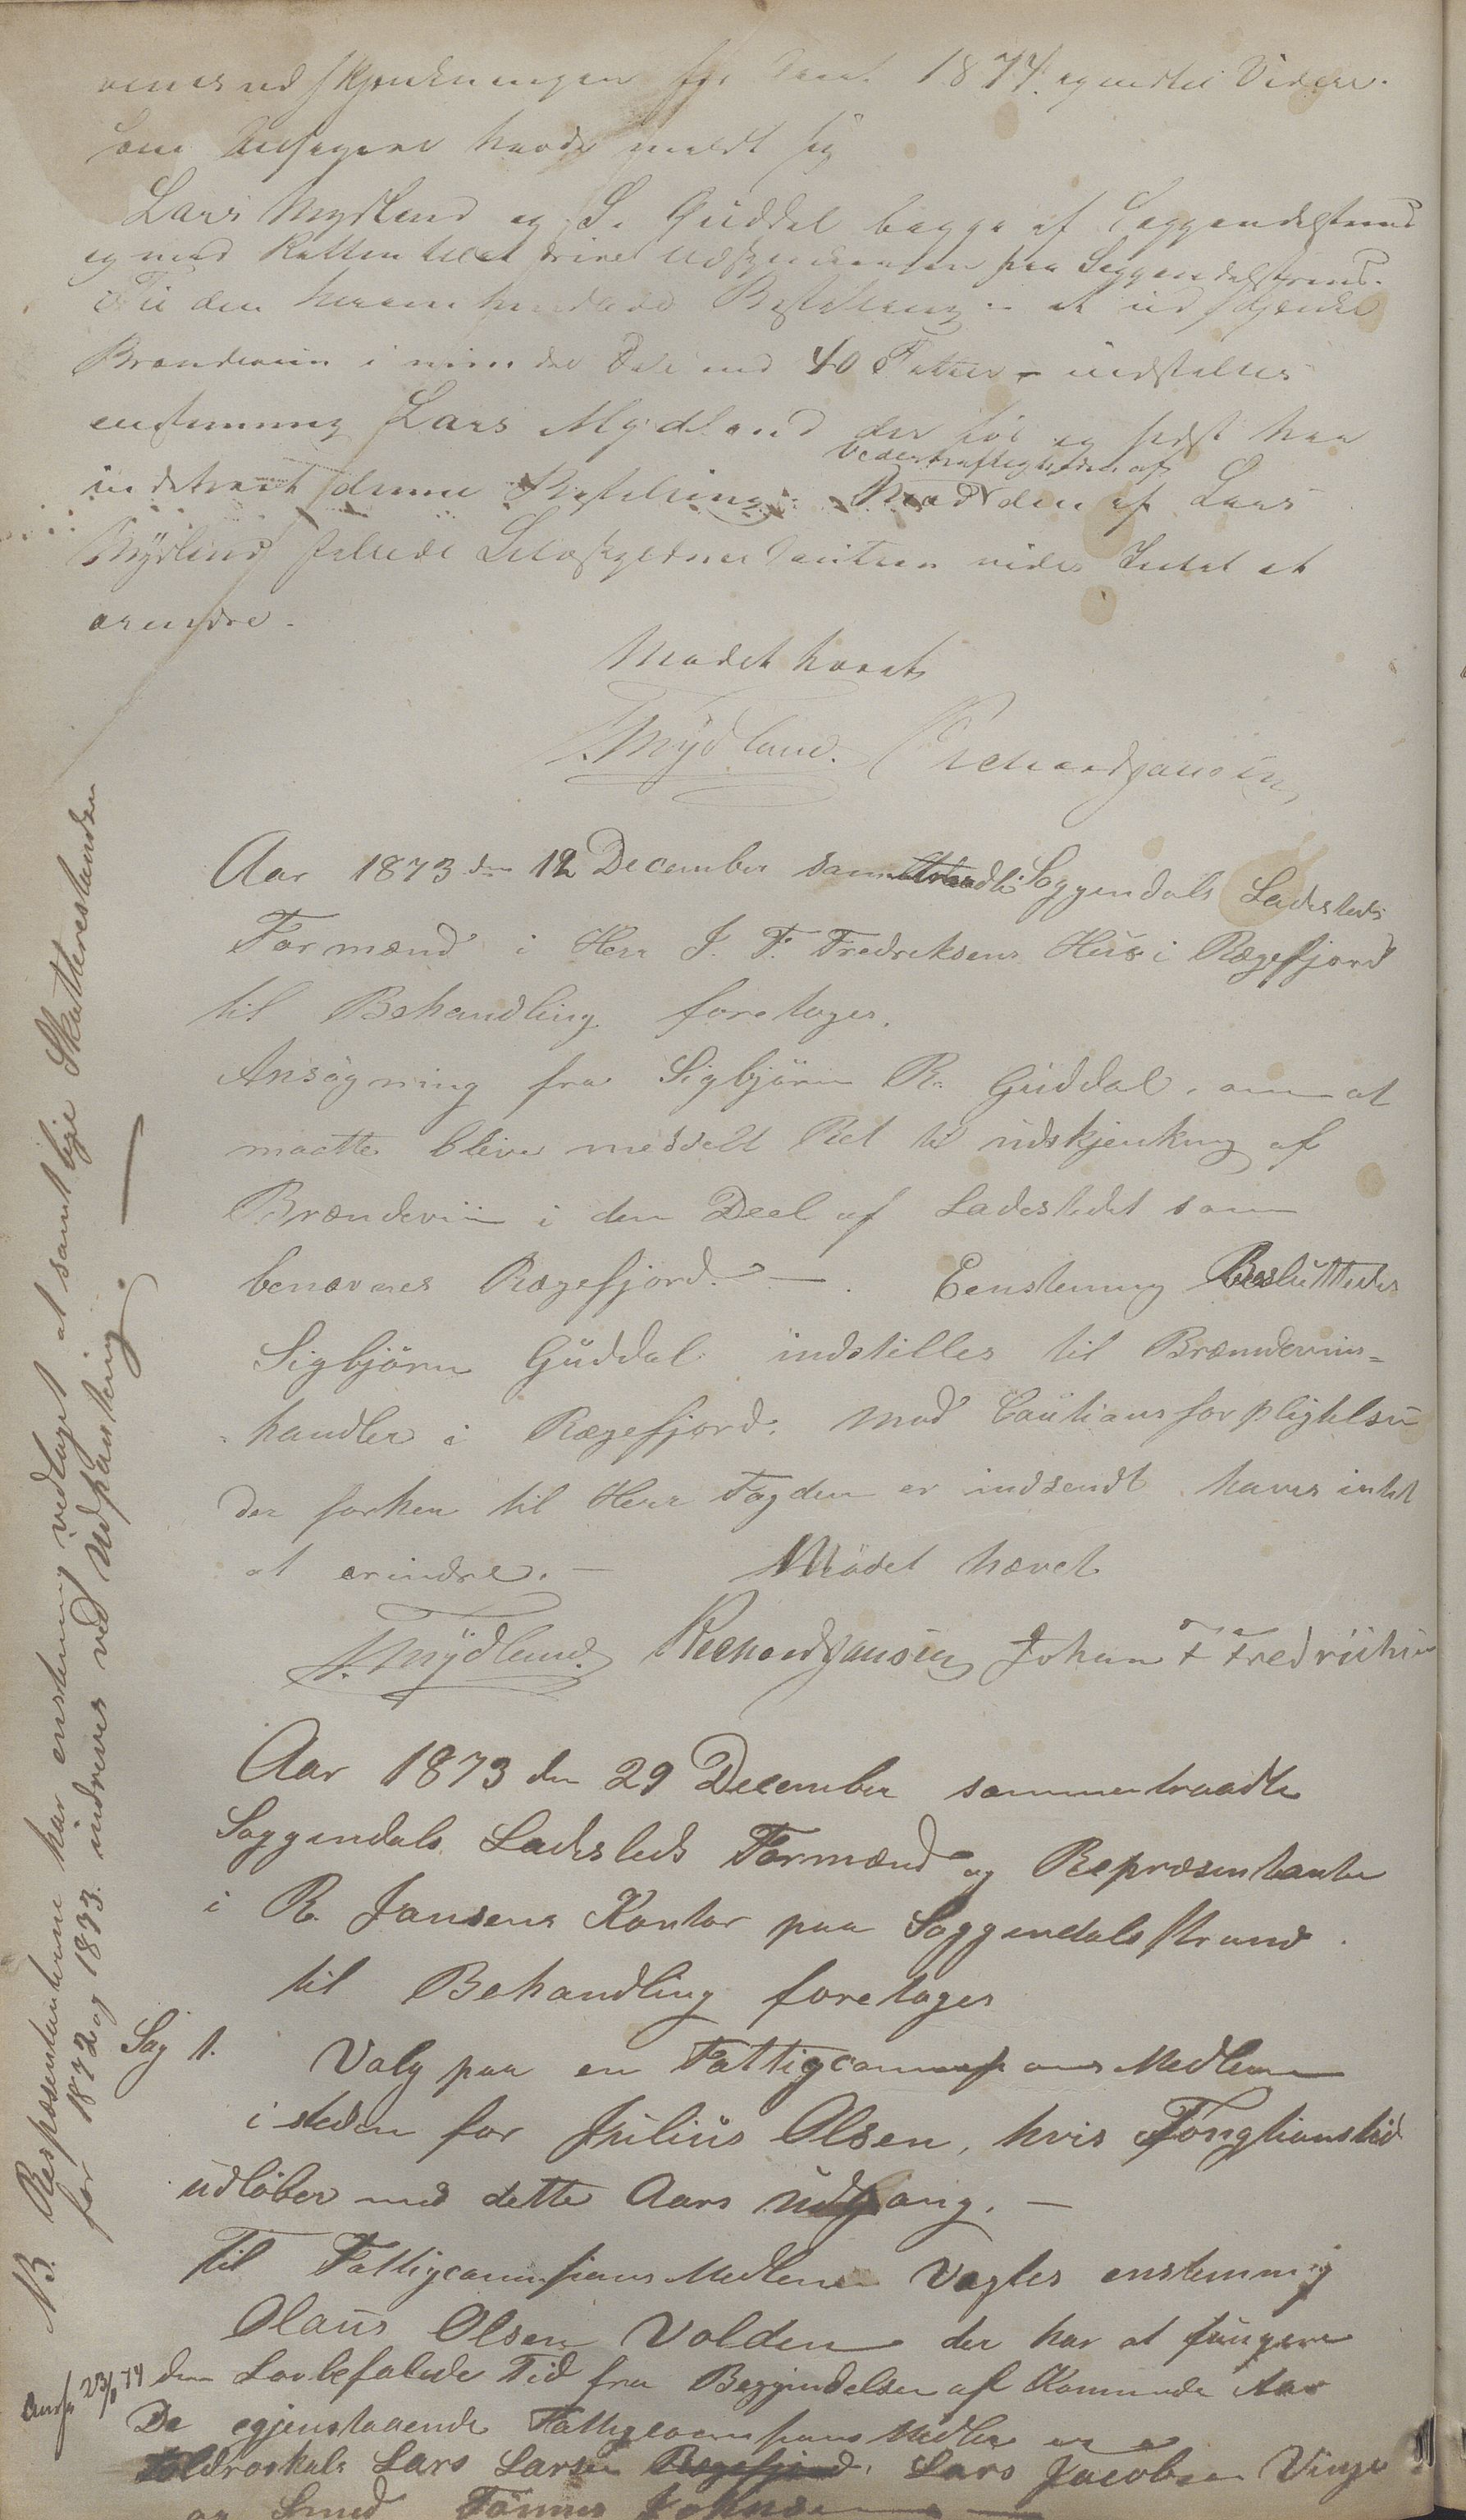 udskjenkningen for Aaret 1874. og indtil Videre.
som Ansøgere havde meldt sig
Lars Mydland og S. Guddal begge af Soggendalstrand
og med Retten til at drive Udskjenkningen paa Soggendalstrand.
Til den Bestilling at udskjænke
Brændeviin i mindre Dele end 40 Potter - indstilles
enstemmig Lars Mydland der før og sidst har
indehavt denne Bestilling. Mod Vederhæftigheden af den af Lars
Mydland stillede Caution vides Intet at
erindre.
Mødet hævet
T. Mydland. Richard Jansen
Aar 1873 den 12 December sammentraadte Soggendals Ladesteds
Formænd i Herr J. F. Fredriksens Hus i Rægefjord
til Behandling foretoges.
Ansøgning fra Sigbjørn R. Guddal, om at
maatte blive meddelt Ret til udskjenkning af
Brændeviin i den Deel af Ladestedet som
benævnes Rægefjord. — Eenstemmig Besluttedes
Sigbjørn Guddal indstilles til Brændeviins=
handler i Rægefjord. Mod Cautionsforpligtelsen
der forhen til Herr Fogden er indsendt haves intet
at erindre. — Mödet hævet
T. Mydland. Richard Jansen Johan F Fredriksen
Aar 1873 den 29 December sammentraadte
Soggendals Ladesteds Formænd og Repræsentanter
i R. Jansens Kontor paa Soggendalsstrand.
til Behandling foretoges
Sag 1. Valg paa en Fattigcommissions Medlem
i steden for Julius Olsen, hvis Fongtionstid
udløber med dette Aars Udgang. —
Til Fattigcommissions Medlem Valgtes enstemmig
Olaus Olsen Volden der har at fungere
den Lovbefalede Tid fra Begyndelsen af Kommende Aar
De gjenstaaende Fattigcommissions Medlemer er
Toldroskarl Lars Larsen Rægefjord, Lars Jacobsen Vinge
og Smed Tönnes Johnsen
NB. Repræsentanterne har enstemmig vedtaget at samtlige Skatterestanser
for 1872 og 1873. inddrives ved Udpantning. —
23/1 74